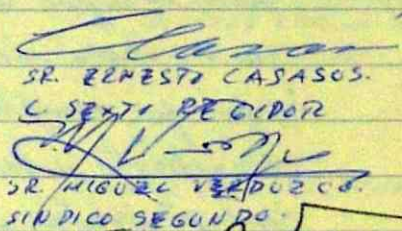 SR. ERNESTO CASASOS.
C. SEXTO REGIDOR
SR. MIGUEL VERDUZCO.
SINDICO SEGUNDO.